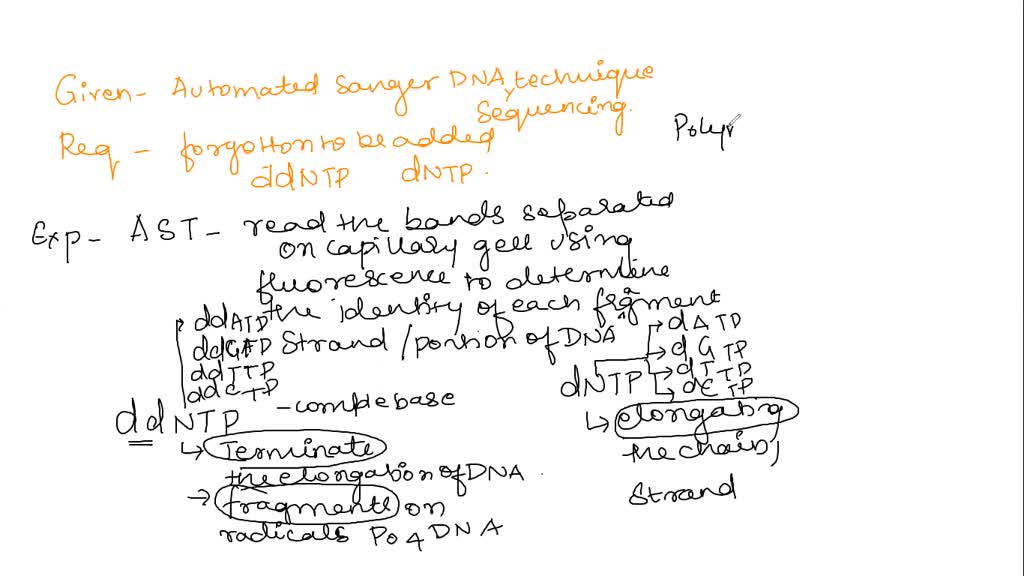 Given- Automated Sanger DNA, technique
Sequencing.
Req - forgotton to be added
ddNTP dNTP.
Polyr
Exp- AST - read the bands separated
on capillary gell using
fluorescence to determine
the identity of each fragment
Strand /portion of DNA
ddATP
ddGTP
ddTTP
ddCTP
dATP
dGTP
dTTP
dCTP
ddNTP - comple base
↳ Terminate
the elongation of DNA.
→ fragments on
radicals PO4 DNA
dNTP
↳ elongating
the chain,
Strand